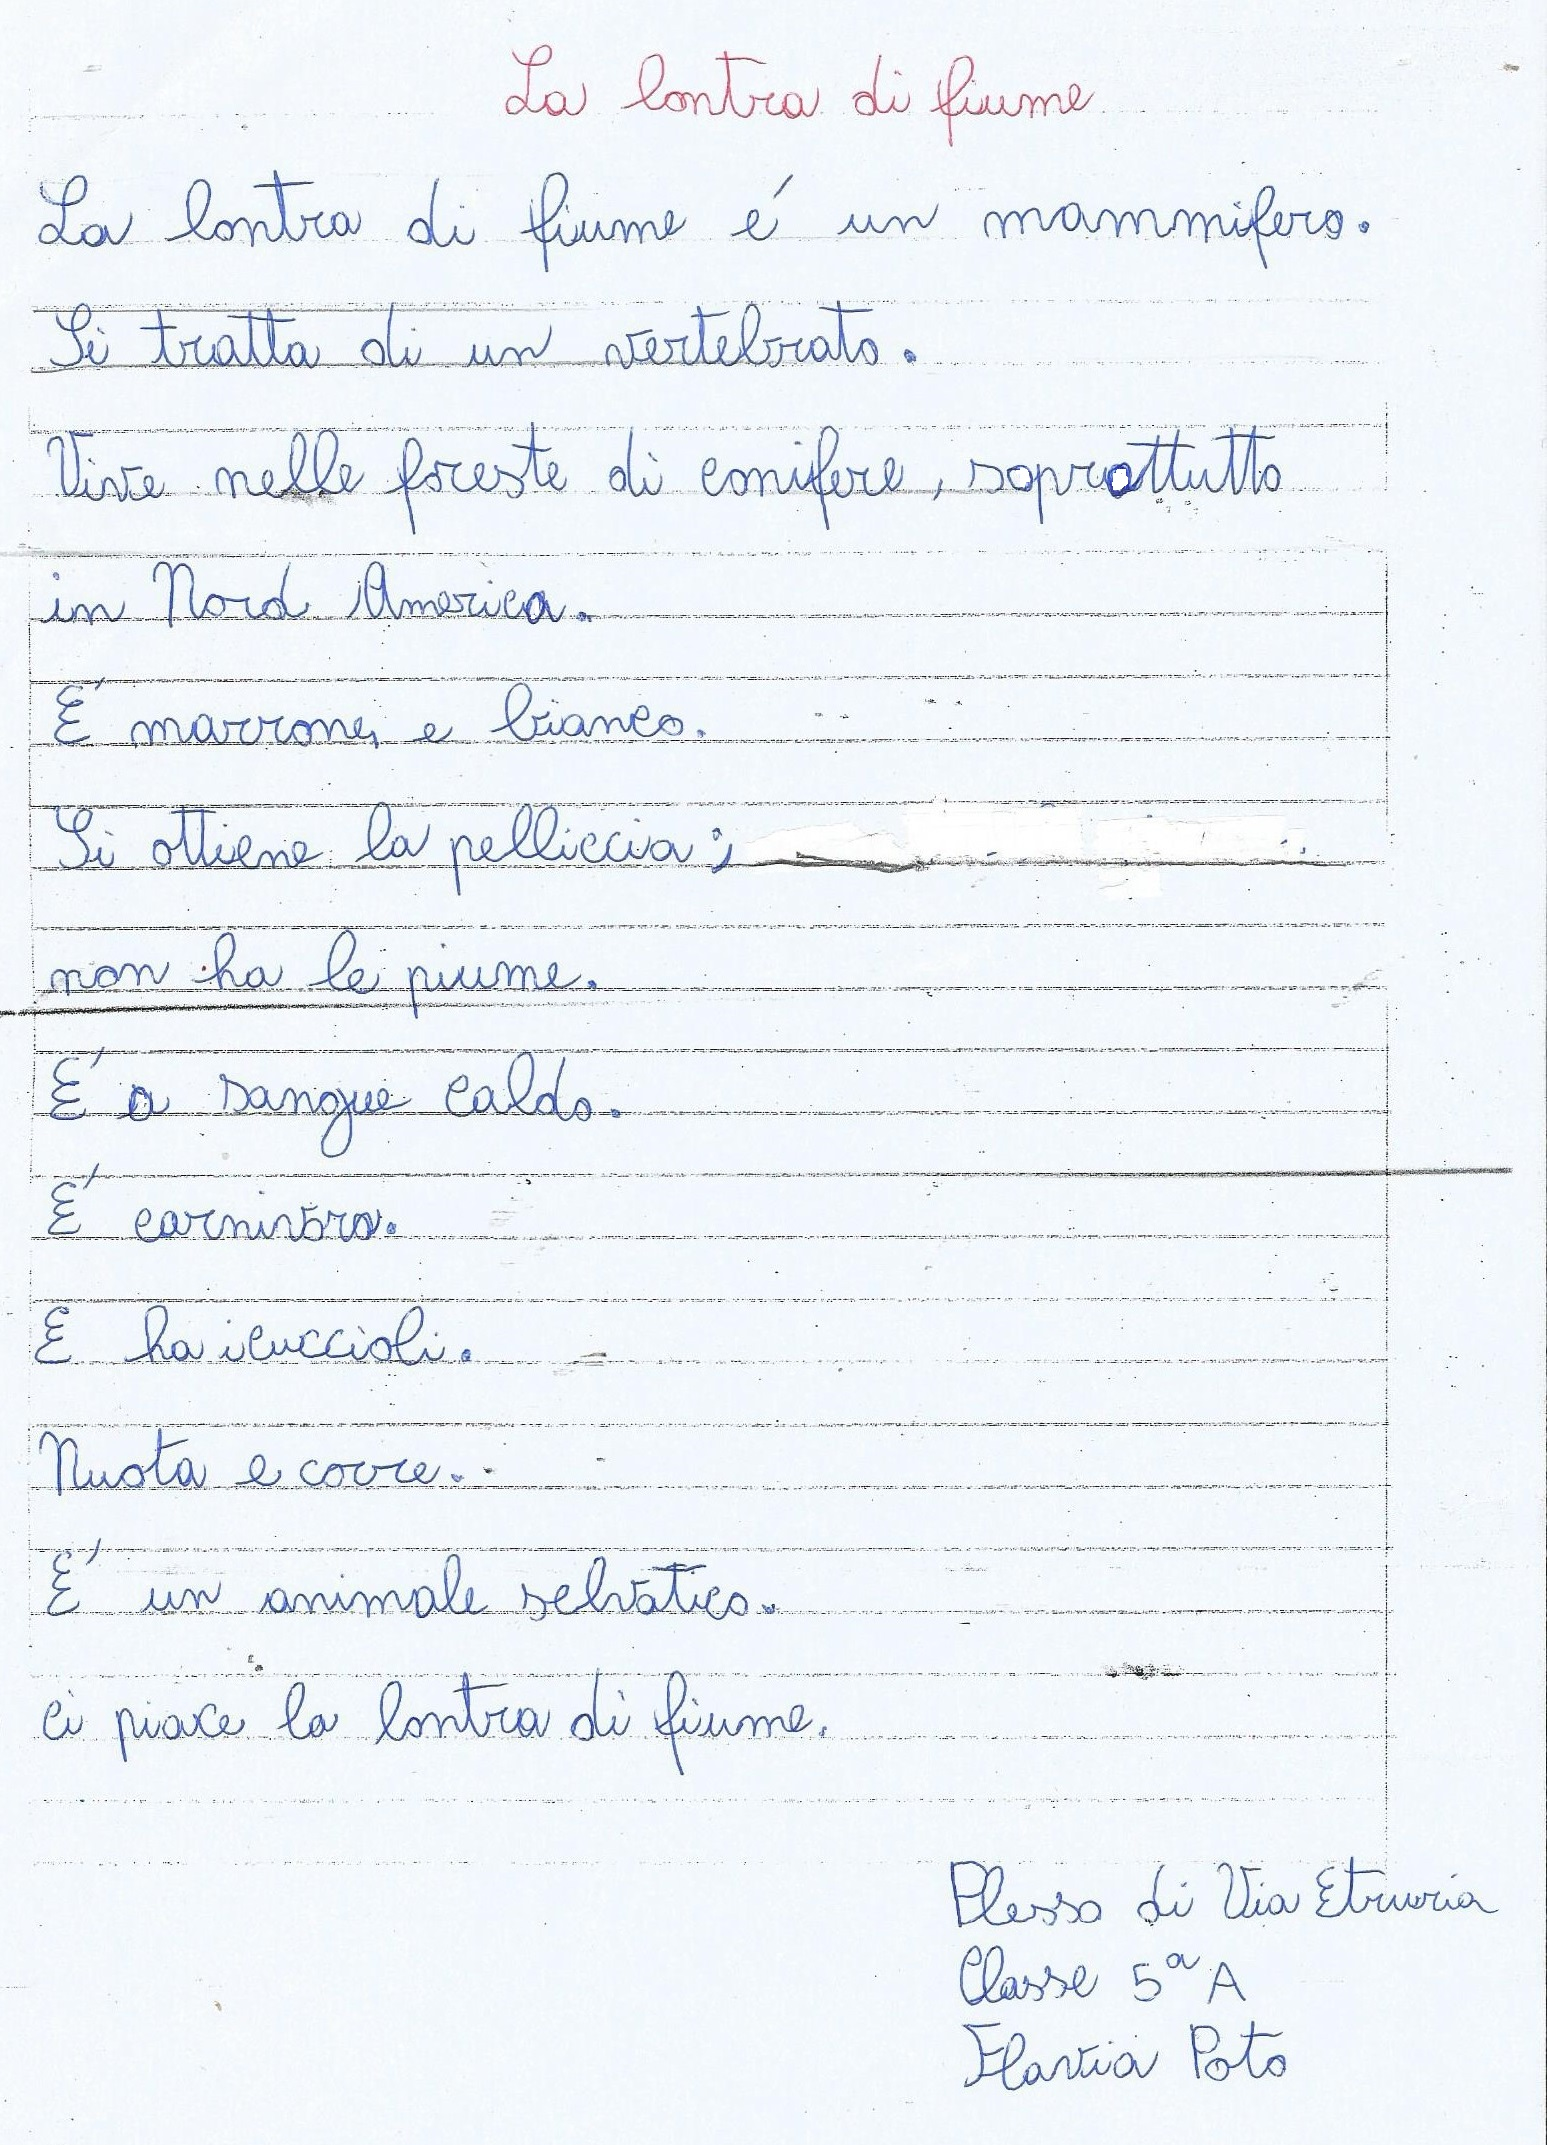 La lontra di fiume
La lontra di fiume é un mammifero.
Si tratta di un vertebrato.
Vive nelle foreste di conifere, soprattutto
in Nord America.
É marrone, e bianco.
Si ottiene la pelliccia;
non ha le piume.
É a sangue caldo.
É carnivoro.
E ha i cuccioli.
Nuota e corre.
É un animale selvatico.
ci piace la lontra di fiume.
Plesso di Via Etruria
Classe 5ª A
Flavia Poto